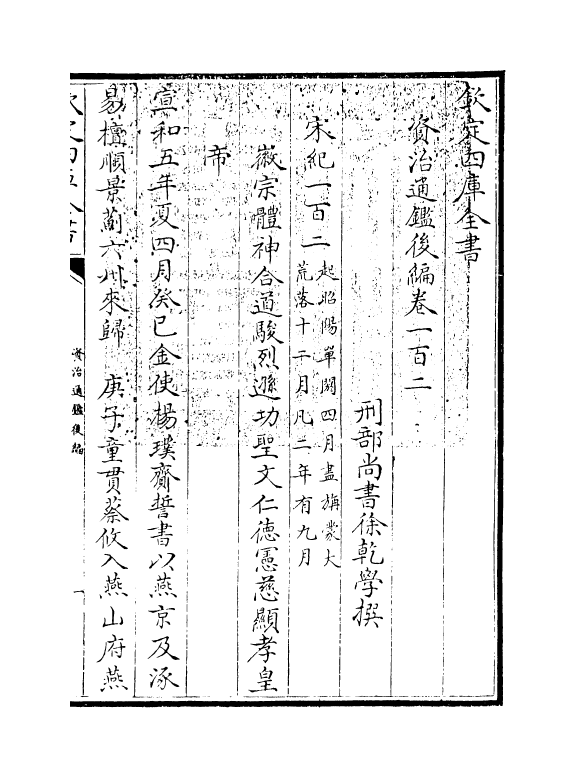 欽定四庫全書
資治通鑑後編卷一百二
刑部尚書徐乾學撰
宋紀一百二起昭陽單閼四月盡旃蒙大荒落十二月凡二年有九月
徽宗體神合道駿烈遜功聖文仁德憲慈顯孝皇
帝
宣和五年夏四月癸巳金使楊璞齎誓書以燕京及涿
易檀順景薊六州來歸　庚子童貫蔡攸入燕山府燕
資治通鑑後編
一